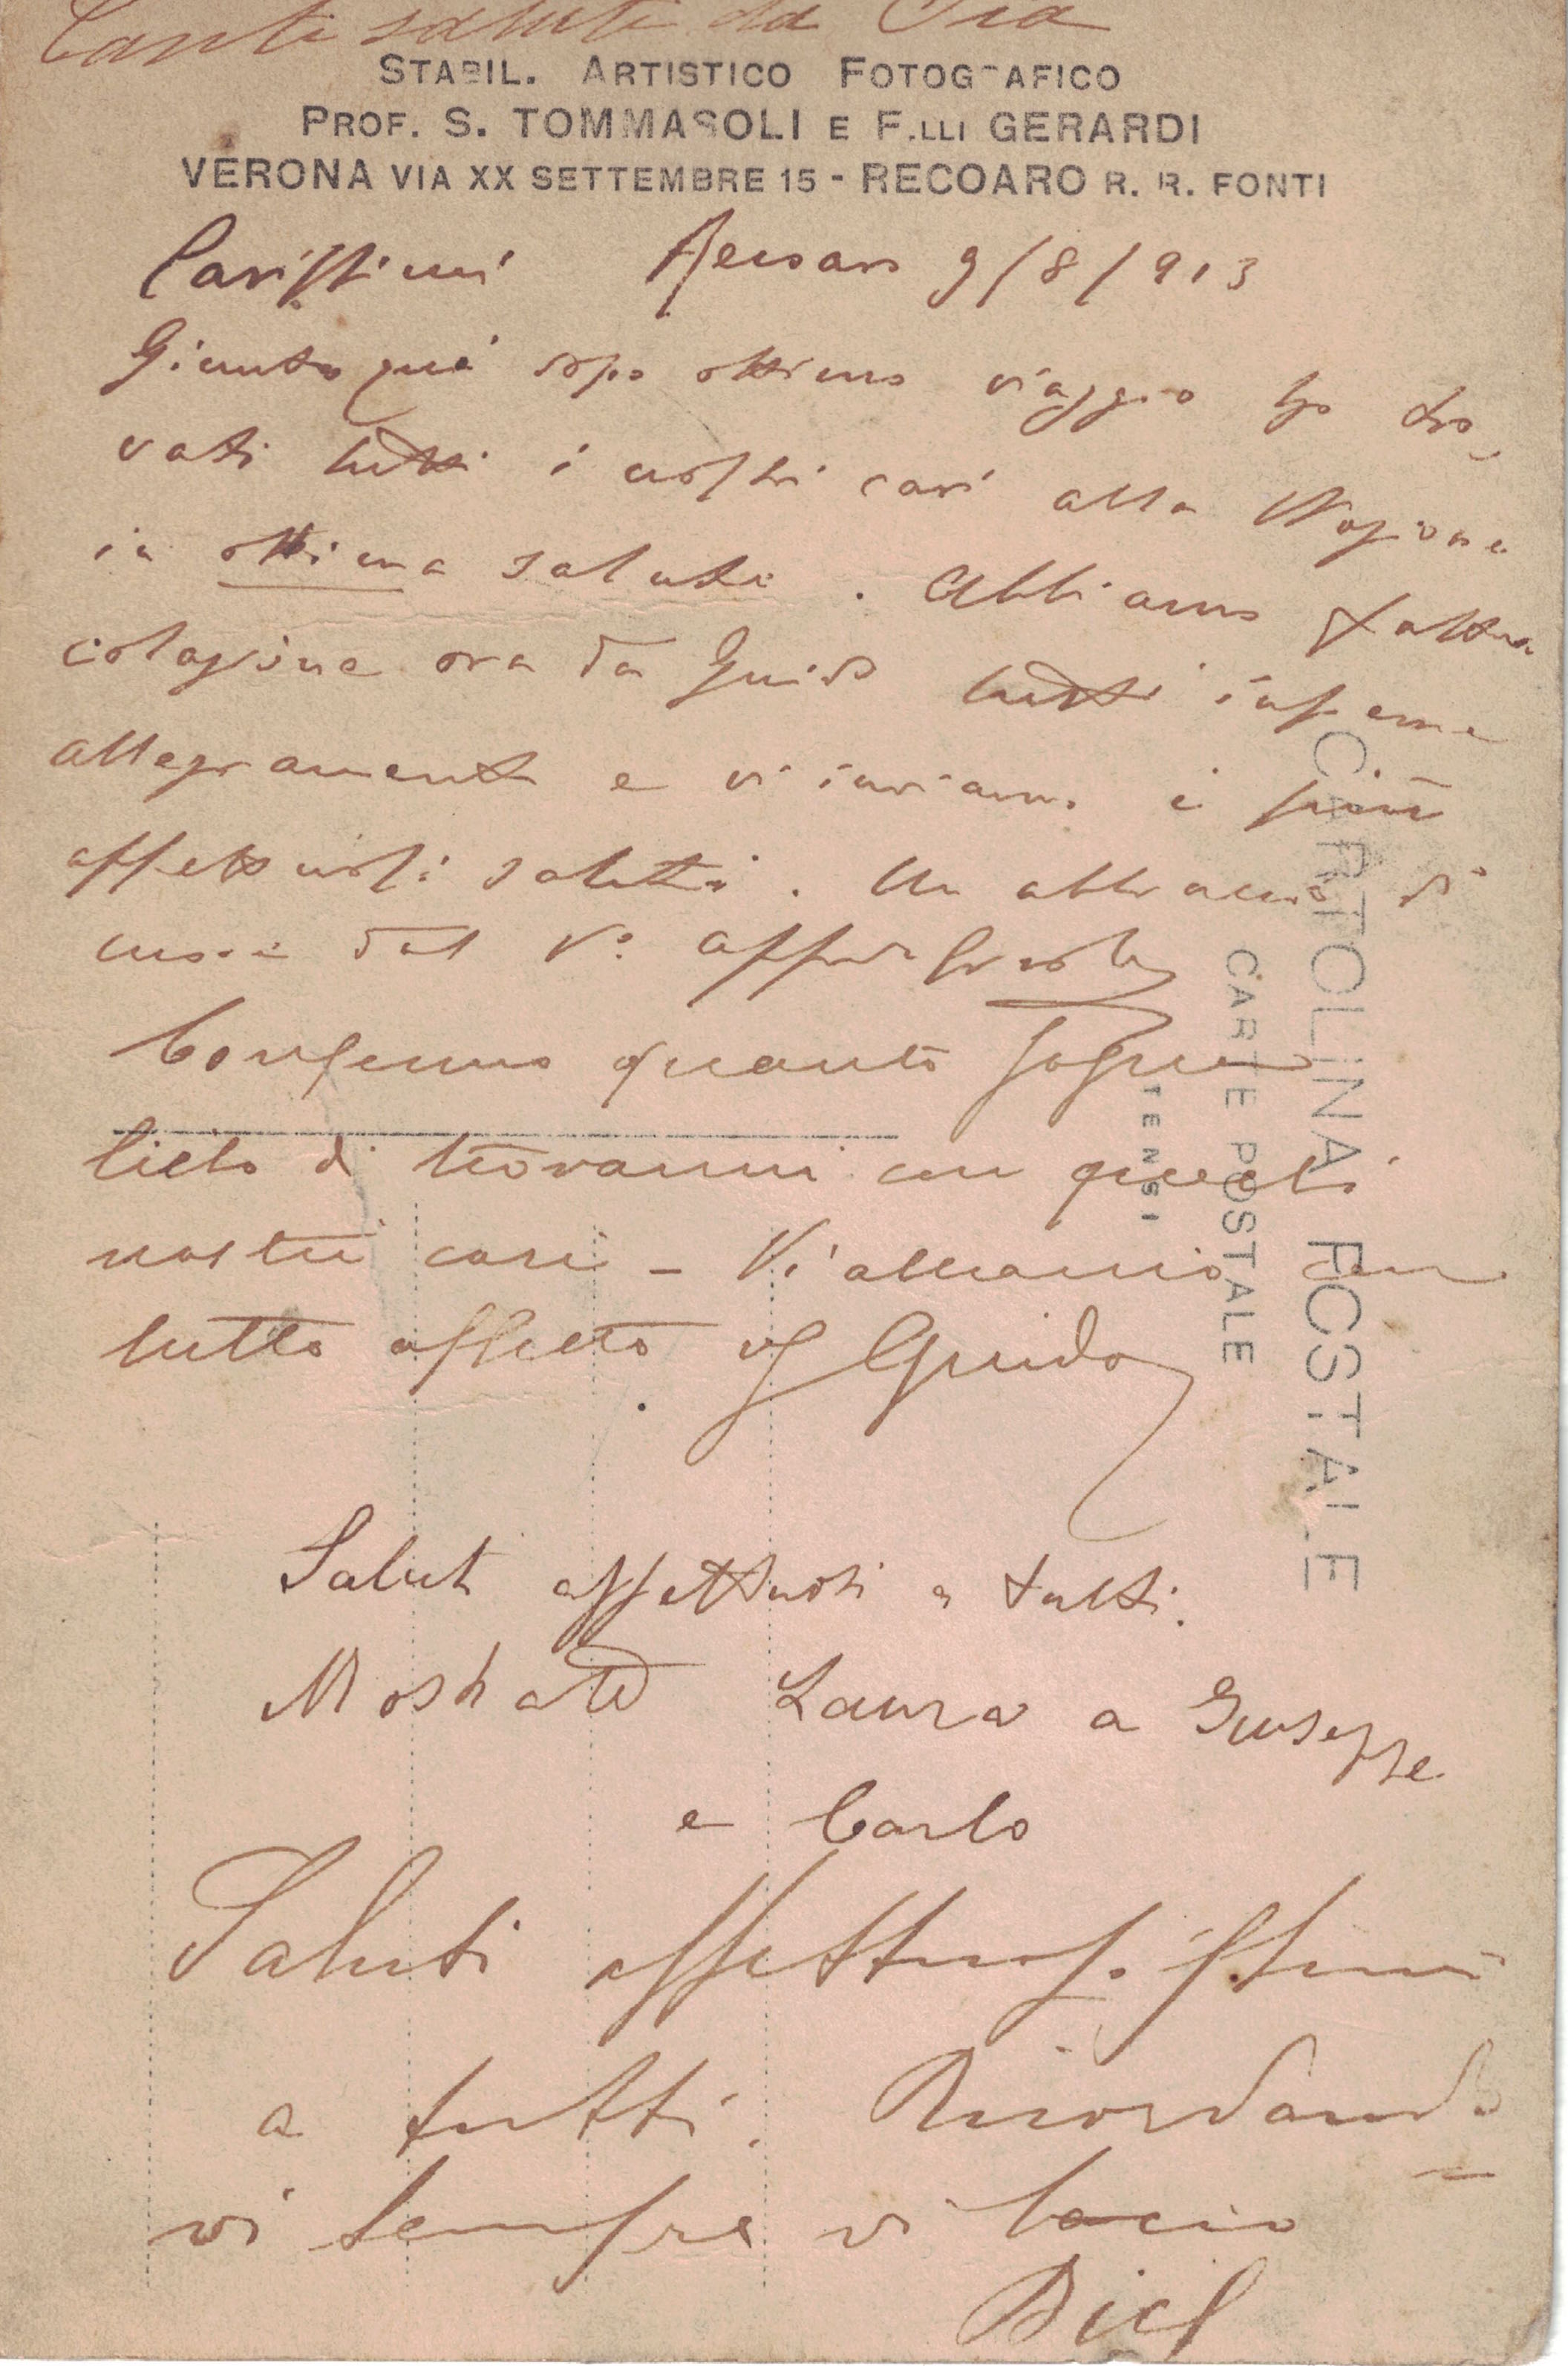 Tanti saluti da Pia
STABIL. ARTISTICO FOTOGRAFICO
PROF. S. TOMMASOLI E F.LLI GERARDI
VERONA VIA XX SETTEMBRE 15 - RECOARO R. R. FONTI
Carissimi Recoaro 9/8/913
Giunto qui dopo ottimo viaggio ho tro-
vati tutti i nostri cari alla stazione
in ottima salute. Abbiamo fatto
colazione ora da Guido tutti insieme
allegramente e vi inviamo i più
affettuosi saluti. Un abbraccio di
cuore dal Vo.
Confermo quanto sopra
lieto di trovarmi con questi
nostri cari - Vi abbraccio con
tutto affetto Guido
Saluti affettuosi a tutti.
Mostrate Laura a Giuseppe
e Carlo
Saluti affettuosissimi
a tutti. Ricordando-
vi sempre vi bacio
CARTOLINA POSTALE
CARTE POSTALE
TENSI